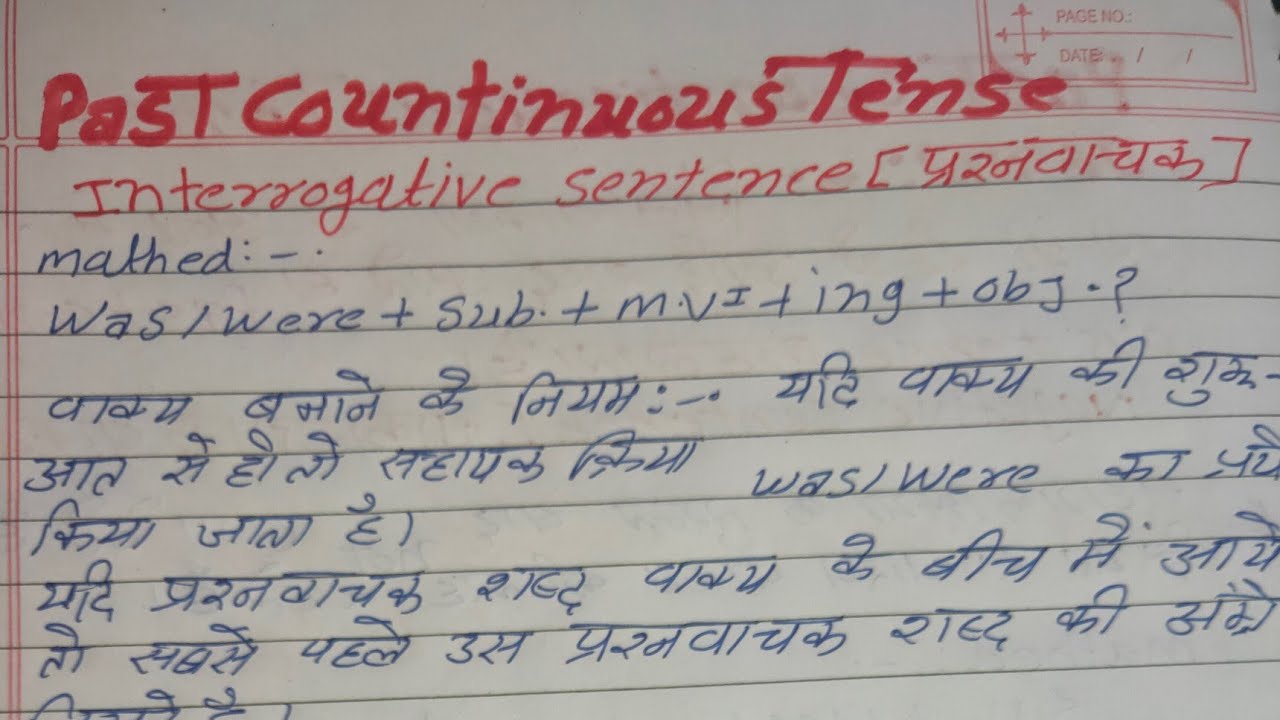 PAGE NO.:
DATE: / /
Past Countinuous Tense
Interrogative sentence [प्रश्नवाचक]
mathed:-.
Was/were + Sub. + m.vI + ing + obj.?
वाक्य बनाने के नियम:-. यदि वाक्य की शुरू-
आत से हो तो सहायक क्रिया was/were का प्रयो
किया जाता है।
यदि प्रश्नवाचक शब्द वाक्य के बीच में आये
तो सबसे पहले उस प्रश्नवाचक शब्द की अंग्रे
है।